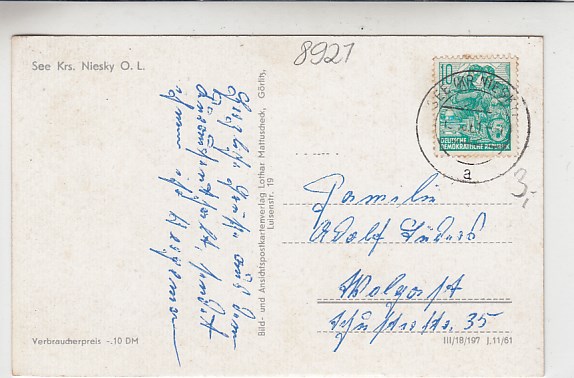 8921
See Krs. Niesky O. L.
10
DEUTSCHE
DEMOKRATISCHE REPUBLIK
SEE (KR NIESKY)
a
3,-
Herzliche Grüße aus dem
sendet
Bild- und Ansichtspostkartenverlag Lothar Mattuscheck, Görlitz,
Luisenstr. 19
Familie
Adolf
Wolgast
35
Verbraucherpreis -.10 DM
III/18/197 J.11/61